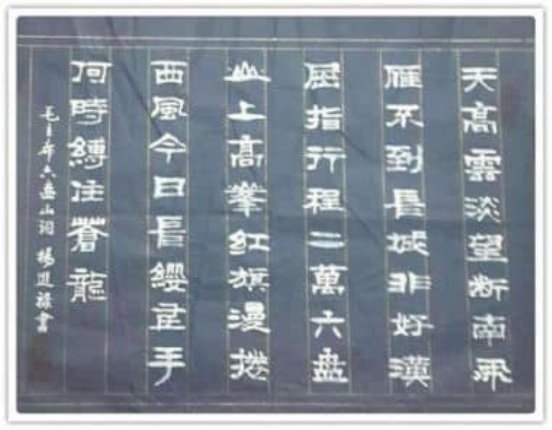 天高雲淡望断南飛
雁不到長城非好漢
屈指行程二萬六盘
山上高峯紅旗漫捲
西風今日長纓在手
何時縛住蒼龍
毛主席六盘山詞 楊禄書